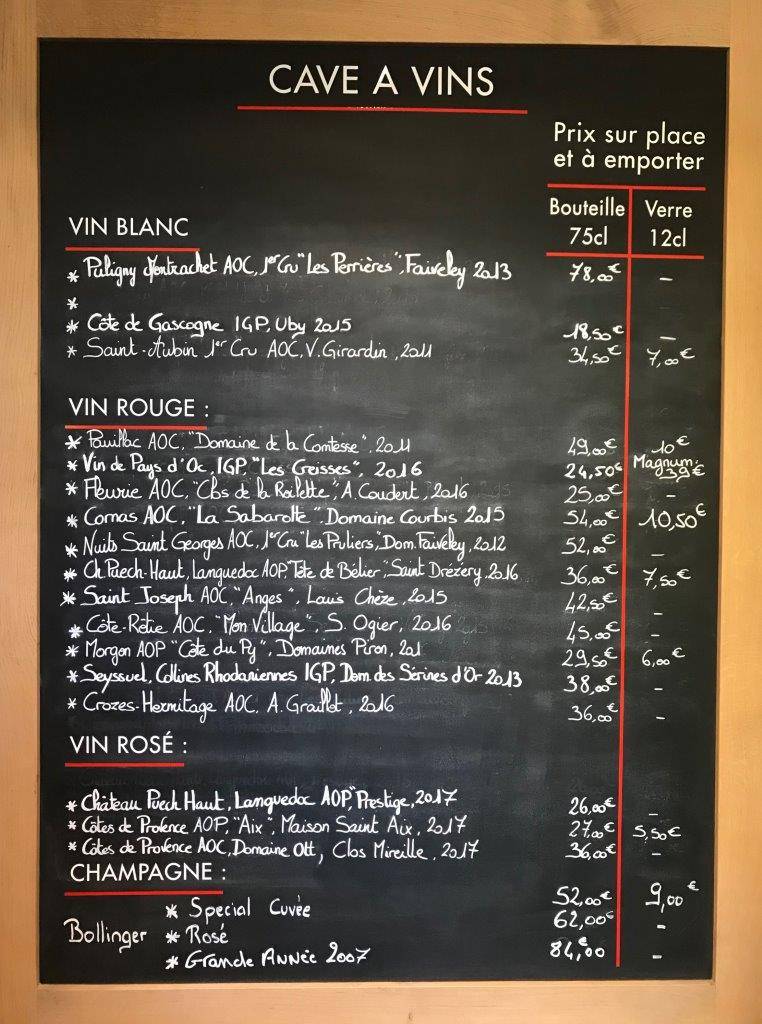 CAVE A VINS
Prix sur place
et à emporter
Bouteille Verre
75cl 12cl
VIN BLANC
* Puligny Montrachet AOC, 1er Cru "Les Perrières", Faiveley 2013 78,00€ –
*
* Côte de Gascogne IGP, Uby 2015 18,50€ –
* Saint-Aubin 1er Cru AOC, V. Girardin, 2011 34,50€ 7,00€
VIN ROUGE :
* Pauillac AOC, "Domaine de la Comtesse", 2011 49,00€ 10€
* Vin de Pays d'Oc, IGP, "Les Creisses", 2016 24,50€ Magnum: 39€
* Fleurie AOC, "Clos de la Roilette", A. Coudert, 2016 25,00€ –
* Cornas AOC, "La Sabarotte", Domaine Courbis 2015 54,00€ 10,50€
* Nuits Saint Georges AOC, 1er Cru "Les Pruliers", Dom. Faiveley, 2012 52,00€ –
* Ch. Puech-Haut, Languedoc AOP, "Tête de Bélier", Saint Drézéry, 2016 36,00€ 7,50€
* Saint Joseph AOC, "Anges", Louis Chèze, 2015 42,50€ –
* Côte-Rôtie AOC, "Mon Village", S. Ogier, 2016 45,00€ –
* Morgon AOP "Côte du Py", Domaines Piron, 201 29,50€ 6,00€
* Seyssuel, Collines Rhodaniennes IGP, Dom. des Sérines d'Or 2013 38,00€ –
* Crozes-Hermitage AOC, A. Graillot, 2016 36,00€ –
VIN ROSÉ :
* Château Puech Haut, Languedoc AOP, "Prestige, 2017 26,00€ –
* Côtes de Provence AOP, "Aix", Maison Saint Aix, 2017 27,00€ 5,50€
* Côtes de Provence AOC, Domaine Ott, Clos Mireille, 2017 36,00€ –
CHAMPAGNE :
* Special Cuvée 52,00€ 9,00€
Bollinger * Rosé 62,00€ –
* Grande Année 2007 84,00€ –